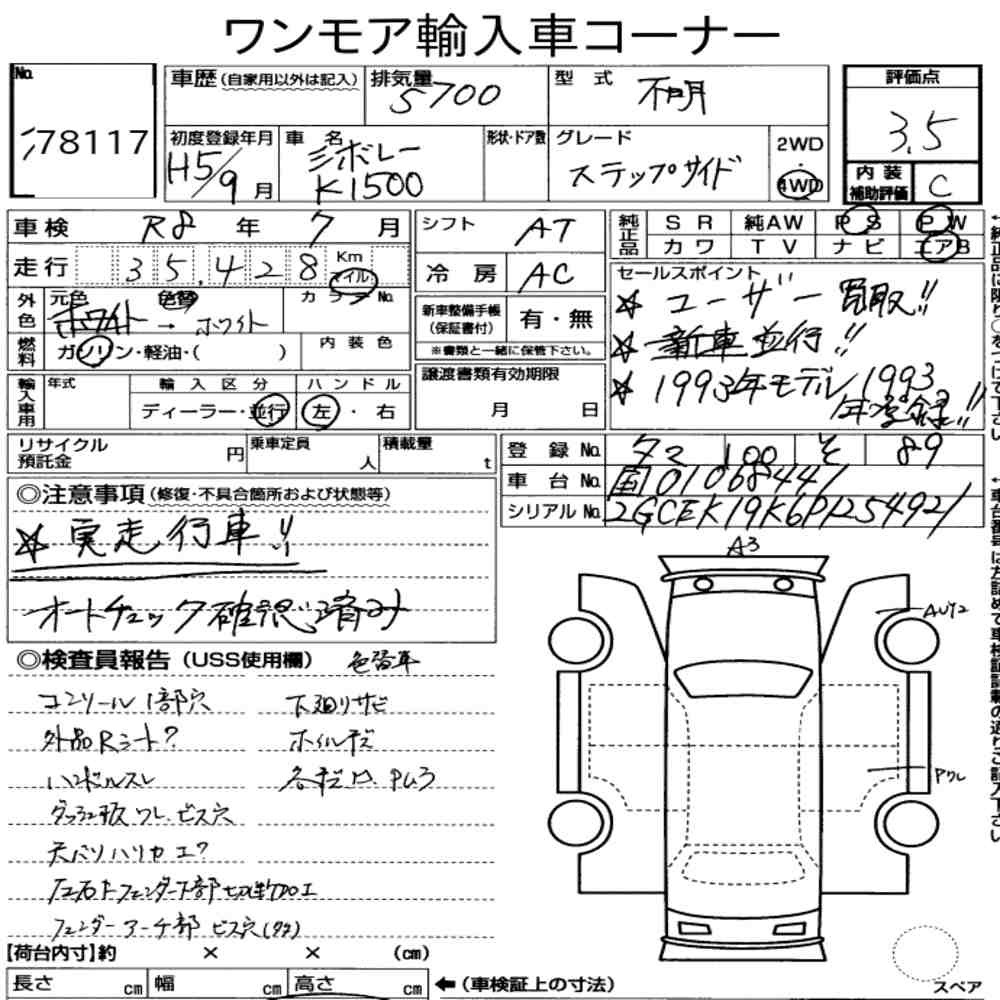 ワンモア輸入車コーナー
No.
78117
車歴 (自家用以外は記入)
排気量
5700
型式
不明
評価点
3.5
初度登録年月
H5/9月
車名
シボレー
K1500
形状・ドア数
グレード
ステップサイド
2WD
・
4WD
内装
補助評価
C
車検 R8年 7月
シフト AT
純正品
SR 純AW PS PW
カワ TV ナビ エアB
走行 35,428 Km
マイル
冷房 AC
セールスポイント
☆ ユーザー買取!!
☆ 新車並行!!
☆ 1993年モデル 1993
年登録!!
外色
元色 色替
ホワイト → ホワイト
カラーNo.
新車整備手帳
(保証書付)
有・無
※書類と一緒に保管下さい。
燃料
ガソリン・軽油・( )
内装色
譲渡書類有効期限
月 日
輸入車用
年式
輸入区分
ディーラー・並行
ハンドル
左・右
リサイクル
預託金 円
乗車定員 人
積載量 t
登録No. 多マ 100 そ 89
車台No. 国01068441
シリアルNo. 2GCEK19K6P1254921
◎注意事項 (修復・不具合箇所および状態等)
☆ 実走行車!!
オートチェック確認済み
◎検査員報告 (USS使用欄) 色替車
コンソール1部穴
下廻りサビ
外品Rシート?
ホイルキズ
ハンドルスレ
ダッシュ形状 ワレ、ビス穴
天バリハリカエ?
左右Fフェンダー下部切断加工
フェンダーアーチ部 ビス穴
A3
AU12
Pワレ
【荷台内寸】約 × × (cm)
長さ cm 幅 cm 高さ cm ←(車検証上の寸法)
スペア